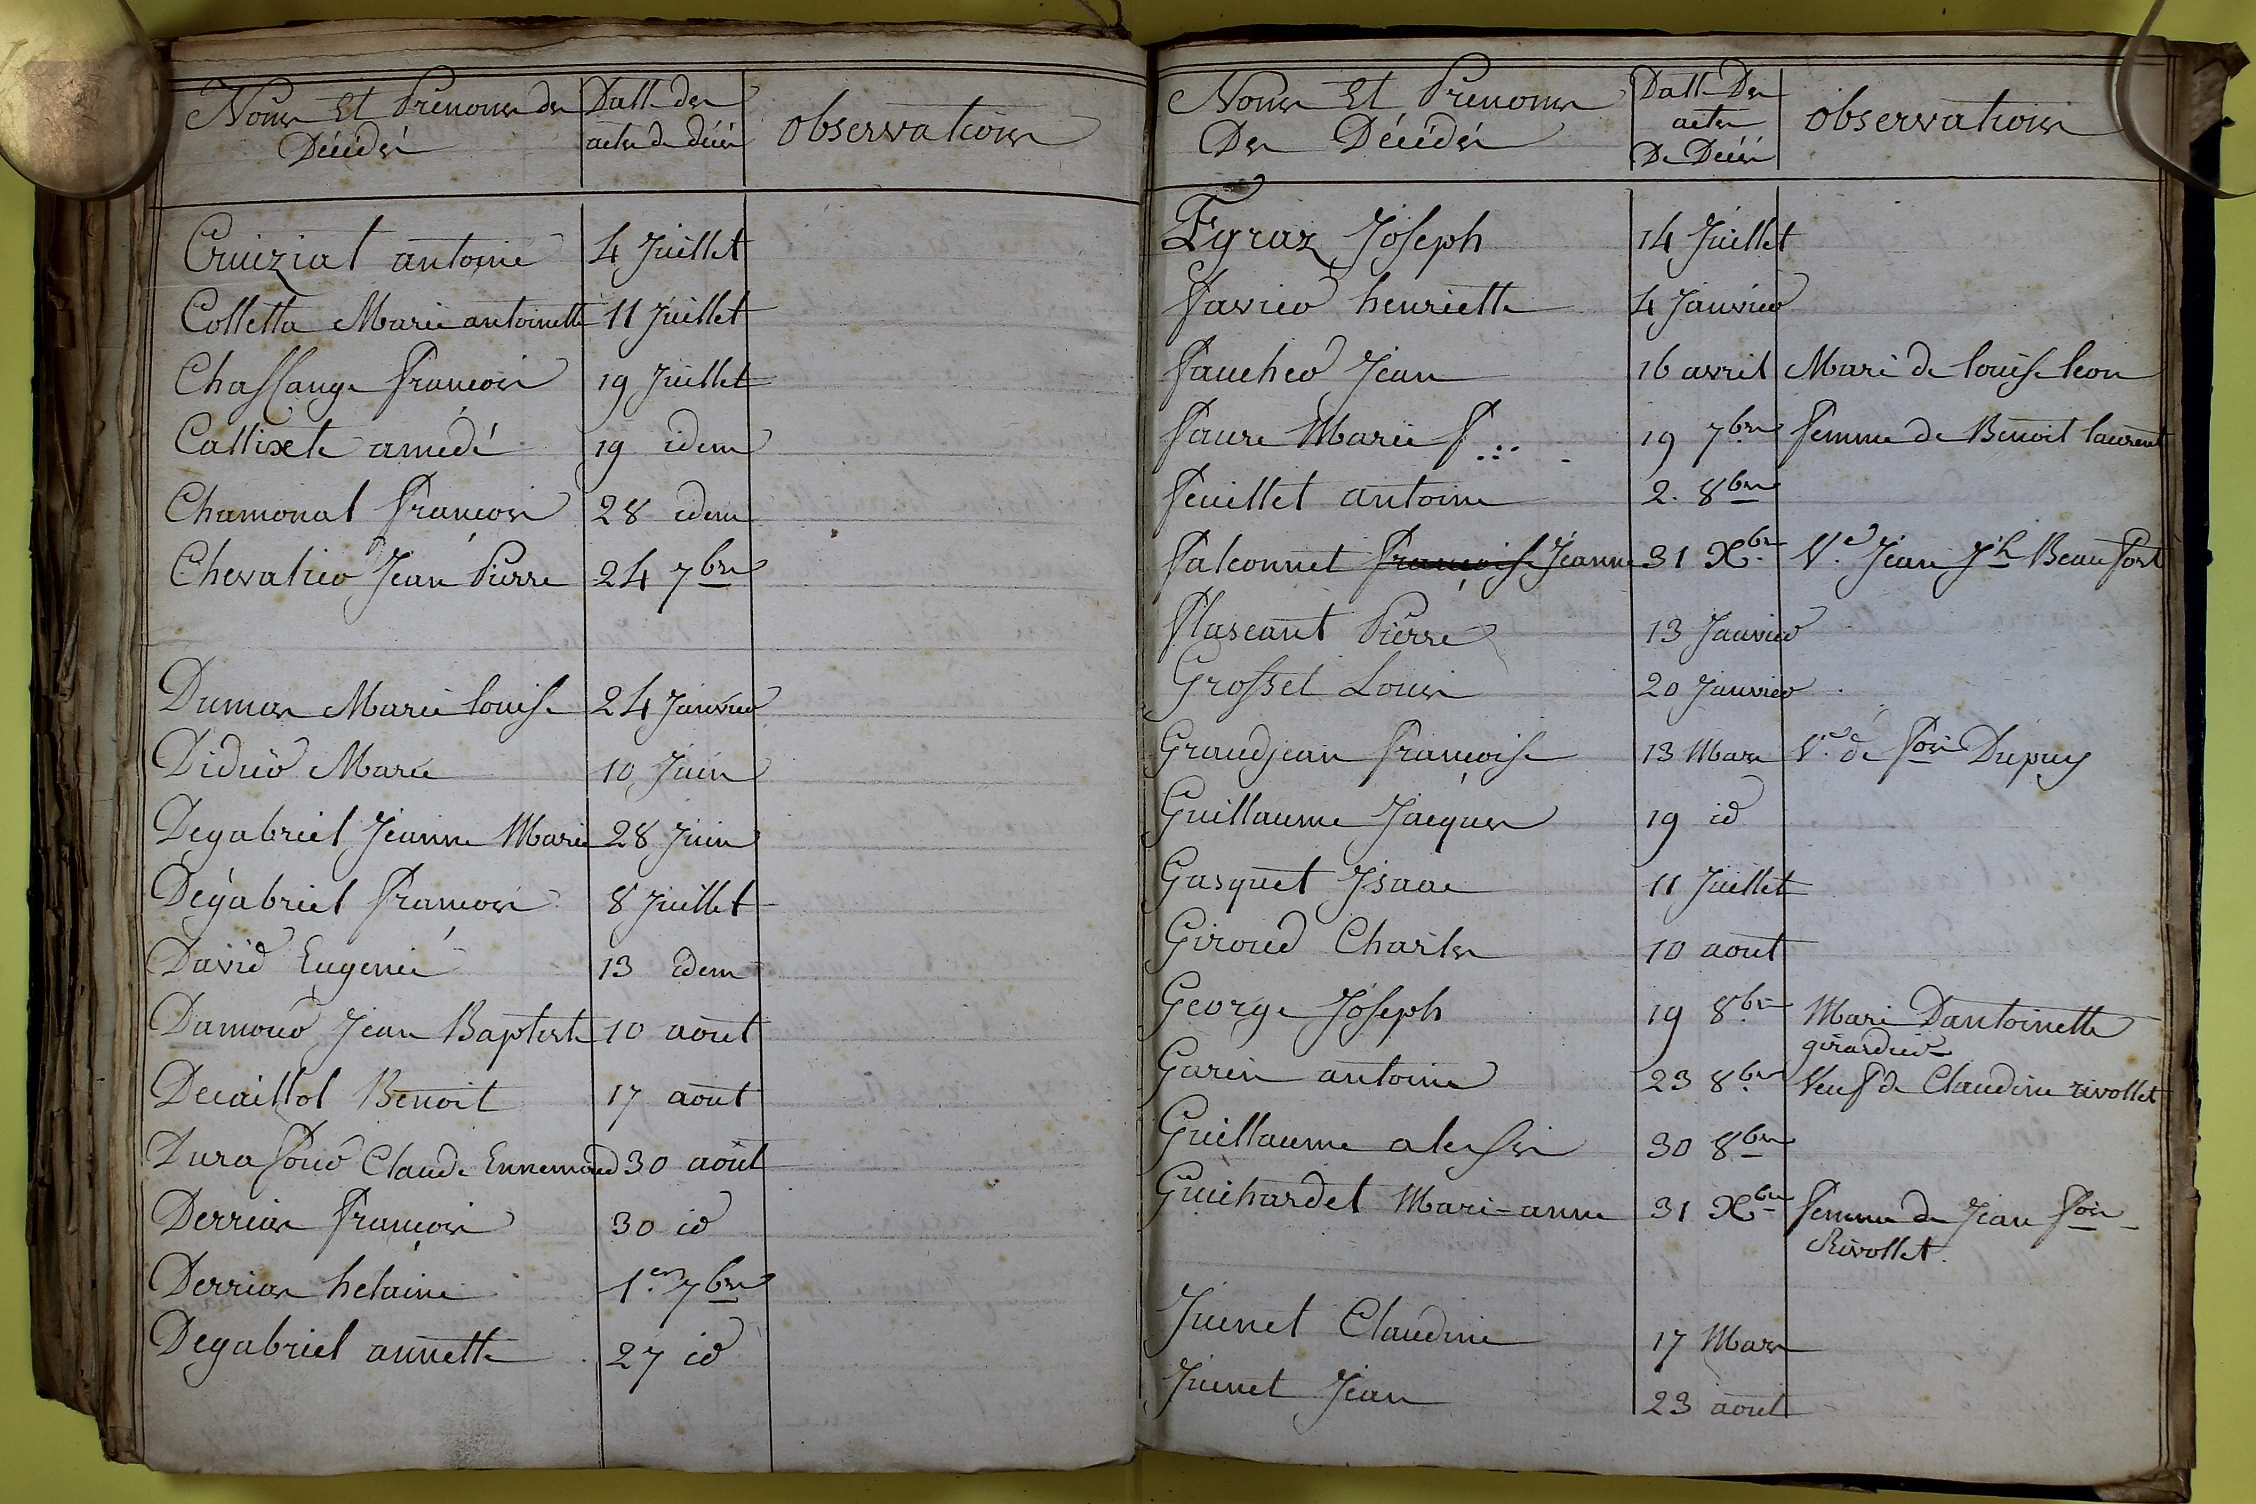 Noms Et Prenoms des
Décédés
Datte des
actes de décès
observations
Cruiziat antoine 4 Juillet
Colletta Marie antoinette 11 Juillet
Chassange françois 19 Juillet
Callixte amédé 19 idem
Chamonal françois 28 idem
Chevalier Jean Pierre 24 7bre
Dumas Marie louise 24 Janvier
Didier Marie 10 Juin
Degabriel Jeanne Marie 28 Juin
Dégabriel françois 8 Juillet
David Eugenie 13 idem
Damour Jean Baptiste 10 aout
Decaillot Benoit 17 aout
Durafour Claude Ennemond 30 aout
Derrias françois 30 id
Derrias helaine 1er 7bre
Degabriel annette 27 id
Noms Et Prenoms
Des Décédés
Datte Des
actes
De Décès
observations
Egraz Joseph 14 Juillet
favier henriette 4 Janvier
faucher Jean 16 avril Mari de louise leon
faure Marie f... 19 7bre femme de Benoit laurent
feuillet antoine 2. 8bre
falconnet françoise Jeanne 31 Xbre Ve Jean Jh Beaufort
flascant Pierre 13 Janvier
Grosset Louis 20 Janvier
Grandjean françoise 13 Mars Ve de fois Dupuy
Guillaume Jacques 19 id
Gasquet Isaac 11 Juillet
Giroud Charles 10 aout
George Joseph 19 8bre Mari Dantoinette
girardier
Garin antoine 23 8bre Veuf de Claudine rivollet
Guillaume alessis 30 8bre
Guichardet Mari-anne 31 Xbre femme de Jean fois
Rivollet
Juenet Claudine 17 Mars
Juenet Jean 23 aout